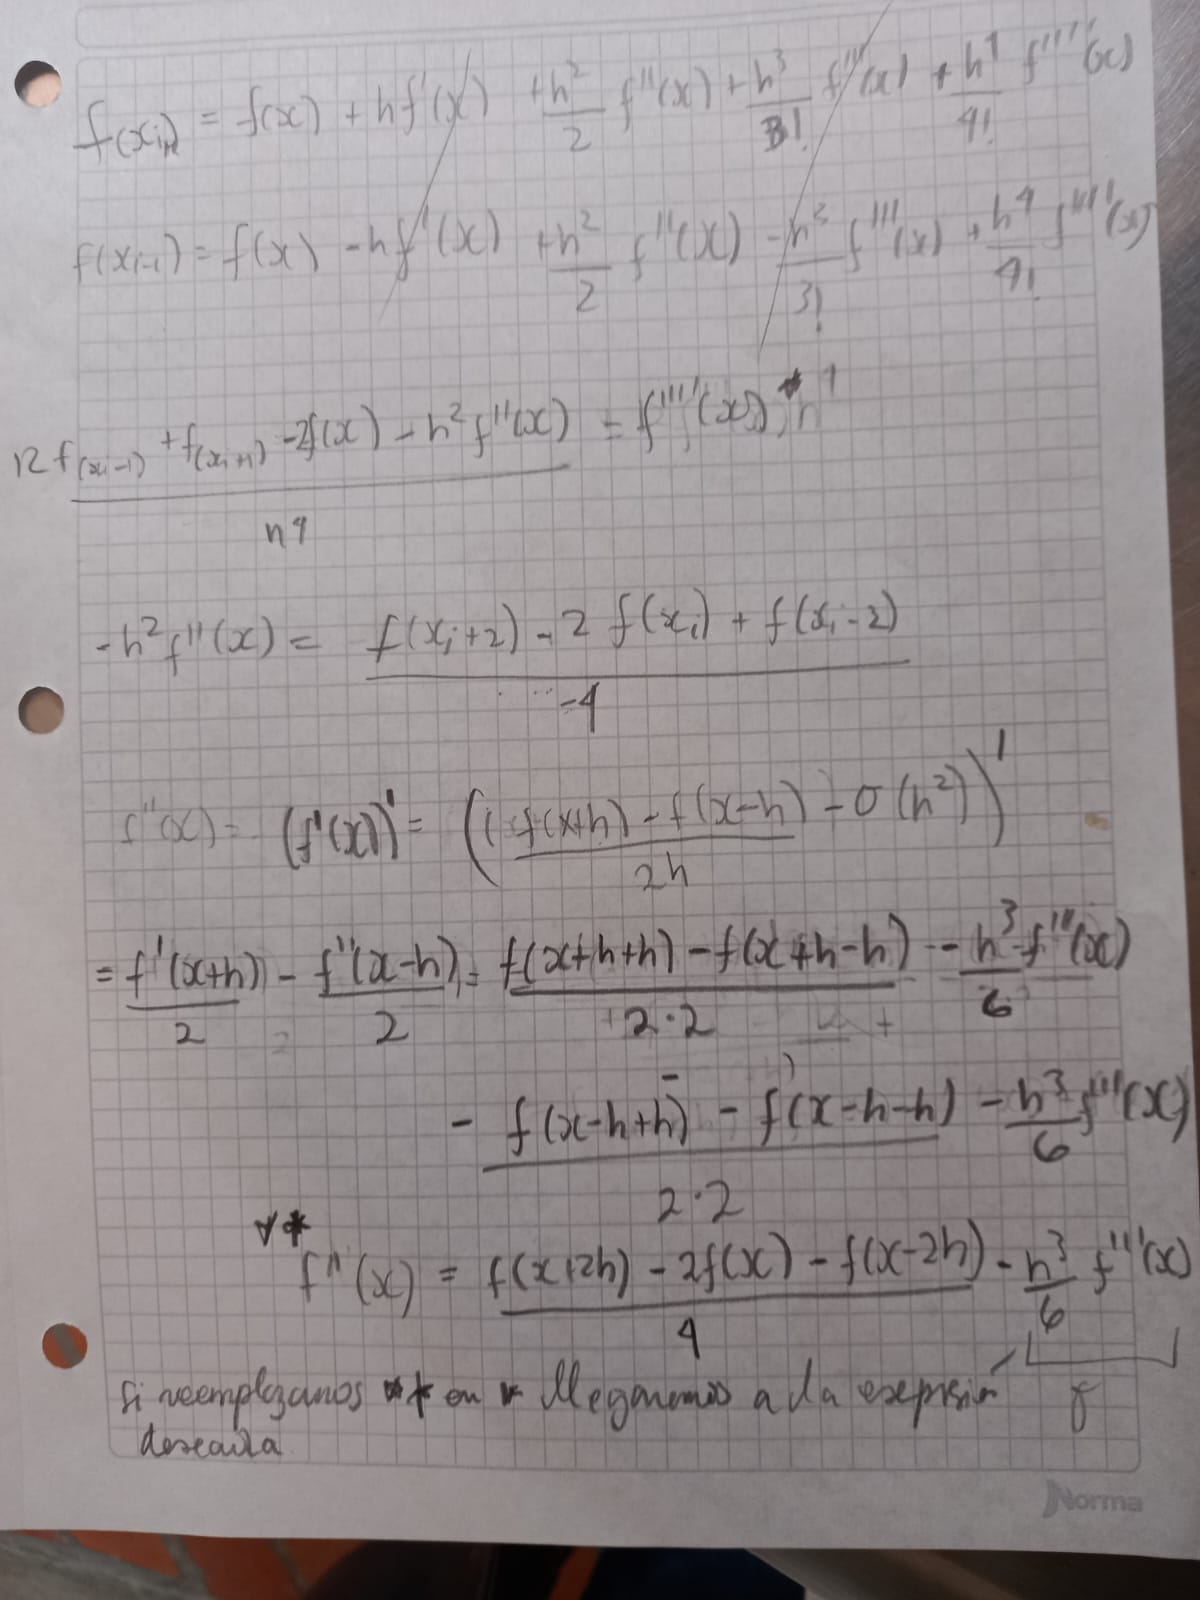 f(xi+1) = f(x) + hf'(x) + h²/2 f''(x) + h³/3! f'''(x) + h⁴/4! f''''(x)
f(xi-1) = f(x) - hf'(x) + h²/2 f''(x) - h³/3! f'''(x) + h⁴/4! f''''(x)
12 f(xi-1) + f(xi+1) - 2f(x) - h² f''(x) / h⁴ = f''''(x) *
- h² f''(x) = f(xi+2) - 2 f(xi) + f(xi-2) / -4
f''(x) = (f'(x))' = ((f(x+h) - f(x-h) / 2h - O(h²))'
= f'(x+h) / 2 - f''(x-h) / 2 = f(x+h+h) - f(x+h-h) / 2·2 - h³/6 f'''(x)
- f(x-h+h) - f(x-h-h) / 2·2 - h³/6 f'''(x)
**
f''(x) = f(x+2h) - 2f(x) - f(x-2h) / 4 - h³/6 f'''(x)
Si reemplazamos ** en * llegaremos a la
deseada
Norma